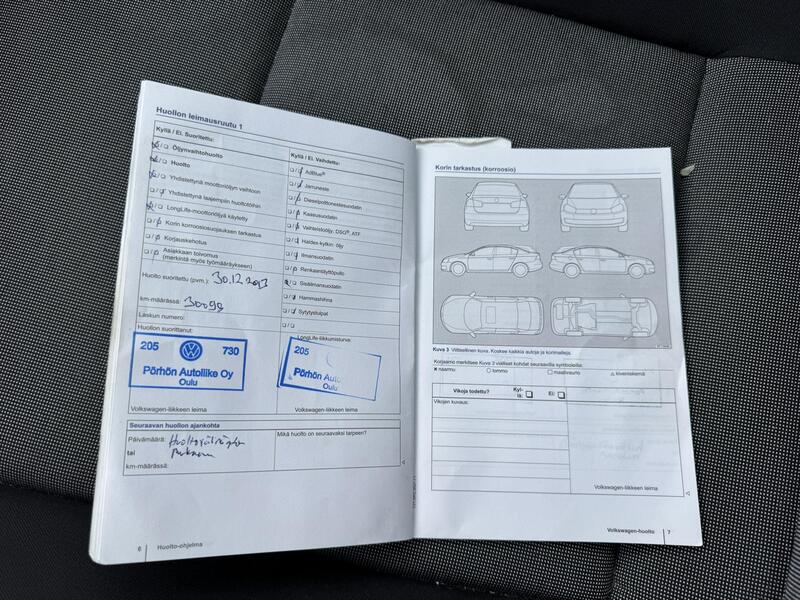 Huollon leimausruutu 1
Kyllä / Ei. Suoritettu:
Öljynvaihtohuolto
Huolto
Yhdistettynä moottoriöljyn vaihtoon
Yhdistettynä laajempiin huoltotöihin
LongLife-moottoriöljyä käytetty
Korin korroosiosuojauksen tarkastus
Korjauskehotus
Asiakkaan toivomus
(merkintä myös työmääräykseen)
Huolto suoritettu (pvm.): 30.12.2013
km-määrässä: 30098
Laskun numero:
Huollon suorittanut:
205 730
Pörhön Autoliike Oy
Oulu
Volkswagen-liikkeen leima
Kyllä / Ei. Vaihdettu:
AdBlue®
Jarruneste
Dieselpolttonestesuodatin
Kaasusuodatin
Vaihteistoöljy: DSG®, ATF
Haldex-kytkin: öljy
Ilmansuodatin
Renkaantäyttöpullo
Sisäilmansuodatin
Hammashihna
Sytytystulpat
LongLife-liikkumisturva:
205
Pörhön Auto
Oulu
Volkswagen-liikkeen leima
Seuraavan huollon ajankohta
Päivämäärä:
tai
mukaan
km-määrässä:
Mikä huolto on seuraavaksi tarpeen?
6 Huolto-ohjelma
Korin tarkastus (korroosio)
Kuva 3 Viitteellinen kuva. Koskee kaikkia autoja ja korimalleja.
Korjaamo merkitsee Kuva 3 vialliset kohdat seuraavilla symboleilla:
x naarmu ○ lommo □ maalivaurio △ kiveniskemä
Vikoja todettu? Kyl-
lä: Ei:
Vikojen kuvaus:
Volkswagen-liikkeen leima
Volkswagen-huolto 7